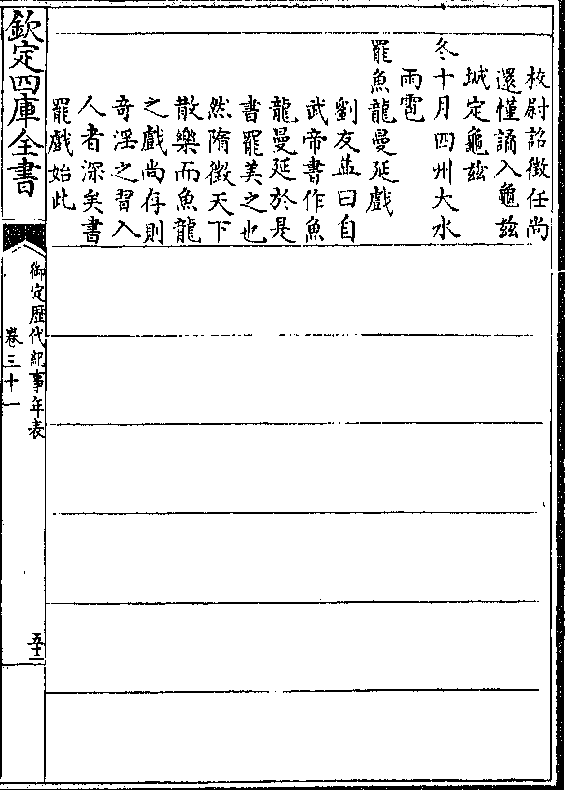 校尉詔徵任尚
還慬譎入龜兹
城定龜兹
冬十月四州大水
雨雹
罷魚龍曼延戲
劉友益曰自
武帝書作魚
龍曼延於是
書罷美之也
然隋徵天下
散樂而魚龍
之戲尚存則
奇淫之習入
人者深矣書
罷戲始此
欽定四庫全書
御定歴代紀事年表
卷三十一
五十二